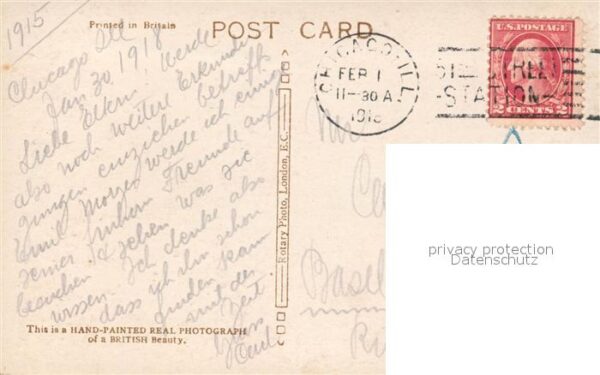 1915
Printed in Britain
POST CARD
Chicago Ill
Jan 30, 1918
Liebe Eltern Werde
also noch weitere Erkundi
gungen einziehen betreffs
Emil Morgen werde ich einige
seiner frühern Freunde auf
besuchen & sehen was sie
wissen Ich denke also
dass ich ihn schon
finden kann
mit der
Zeit
Carl
This is a HAND-PAINTED REAL PHOTOGRAPH
of a BRITISH Beauty.
Rotary Photo, London, E.C.
CHICAGO, ILL.
FEB 1
11-30 A.
191
STATION
U.S. POSTAGE
2 CENTS 2
Basel
privacy protection
Datenschutz